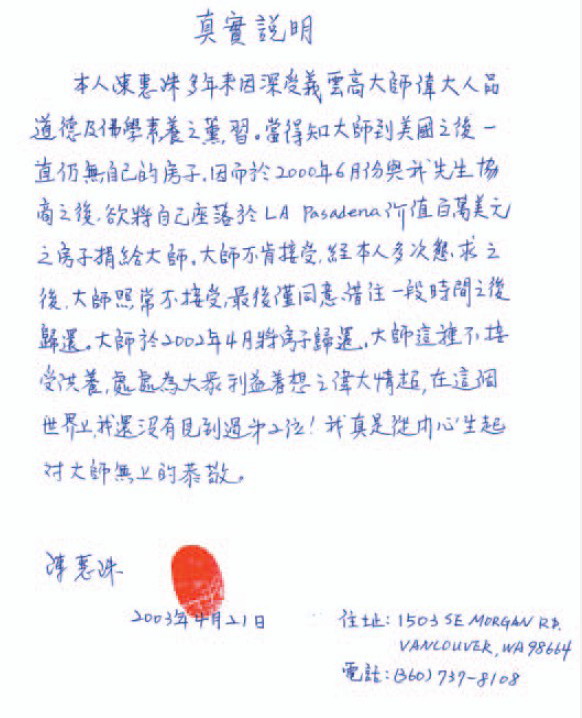 真實説明
本人陳惠姝多年来因深受義雲高大師偉大人品
道德及佛學素養之薰習。當得知大師到美國之後一
直仍無自己的房子,因而於2000年6月份與我先生協
商之後,欲將自己座落於LA Pasadena价值百萬美元
之房子捐給大師。大師不肯接受,經本人多次懇求之
後,大師照常不接受,最後僅同意借住一段時間之後
歸還。大師於2002年4月將房子歸還。大師這種不接
受供養,處處為大眾利益著想之偉大情超,在這個
世界上,我還沒有見到過第2位!我真是從内心生起
对大師無上的恭敬。
陳惠姝
2003年4月21日
住址:1503 SE MORGAN RD.
VANCOUVER, WA 98664
電話:(360) 737-8108